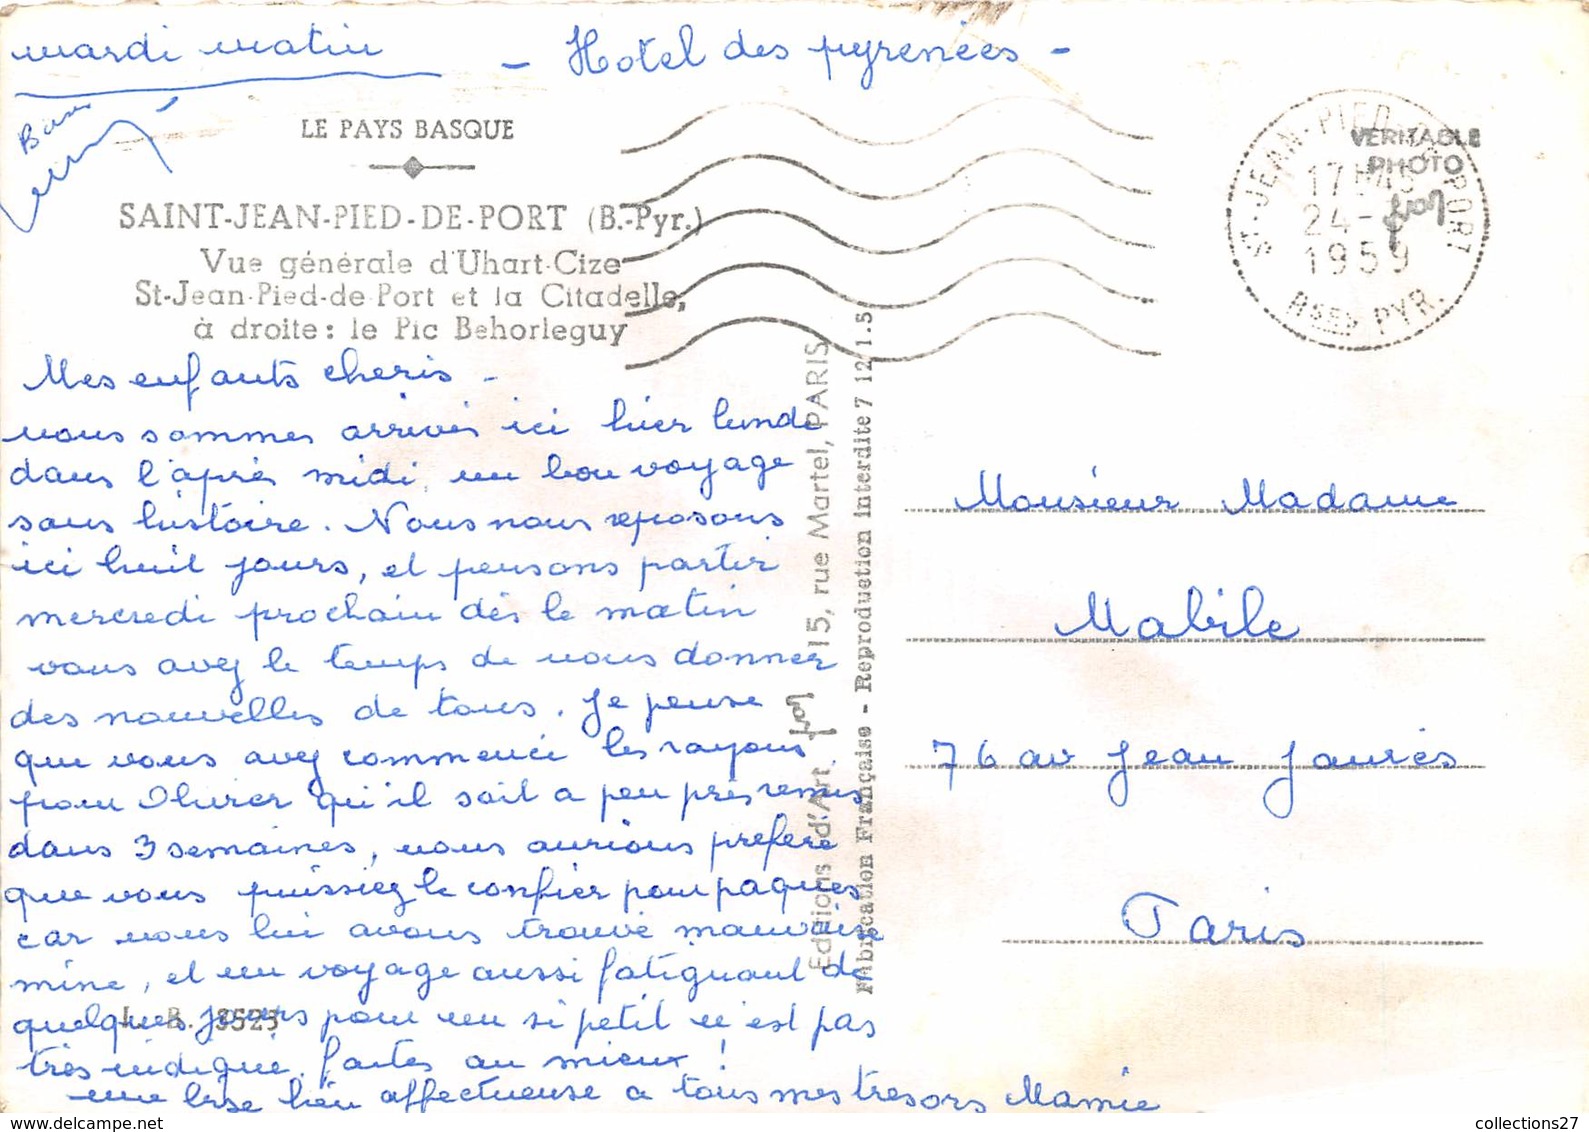 mardi matin
- Hotel des pyrenées -
LE PAYS BASQUE
SAINT-JEAN-PIED-DE-PORT (B.-Pyr.)
Vue générale d'Uhart-Cize
St-Jean-Pied-de-Port et la Citadelle,
à droite : le Pic Behorleguy
VERITABLE
PHOTO
yvon
ST-JEAN-PIED-DE-PORT
24-
1959
BSES PYR.
Mes enfants cheris -
nous sommes arrivés ici hier lundi
dans l'après midi, un bon voyage
sans histoire. Nous nous reposons
ici huit jours, et pensons partir
mercredi prochain dès le matin
vous avez le temps de nous donner
des nouvelles de tous. Je pense
que vous avez commencé les rayons
pour Olivier qu'il soit a peu près remis
dans 3 semaines, nous aurions préféré
que vous puissiez le confier pour paques
car nous lui avons trouvé mauvaise
mine, et un voyage aussi fatiguant de
quelques jours pour un si petit n'est pas
très indiqué. faites au mieux !
une bse bien affectueuse a tous mes tresors Mamie
L. B. 8525
Editions d'Art yvon 15, rue Martel, PARIS
Fabrication Française - Reproduction interdite 7 12.1.5
Monsieur Madame
Mabile
76 av Jean Jaurès
Paris
collections27